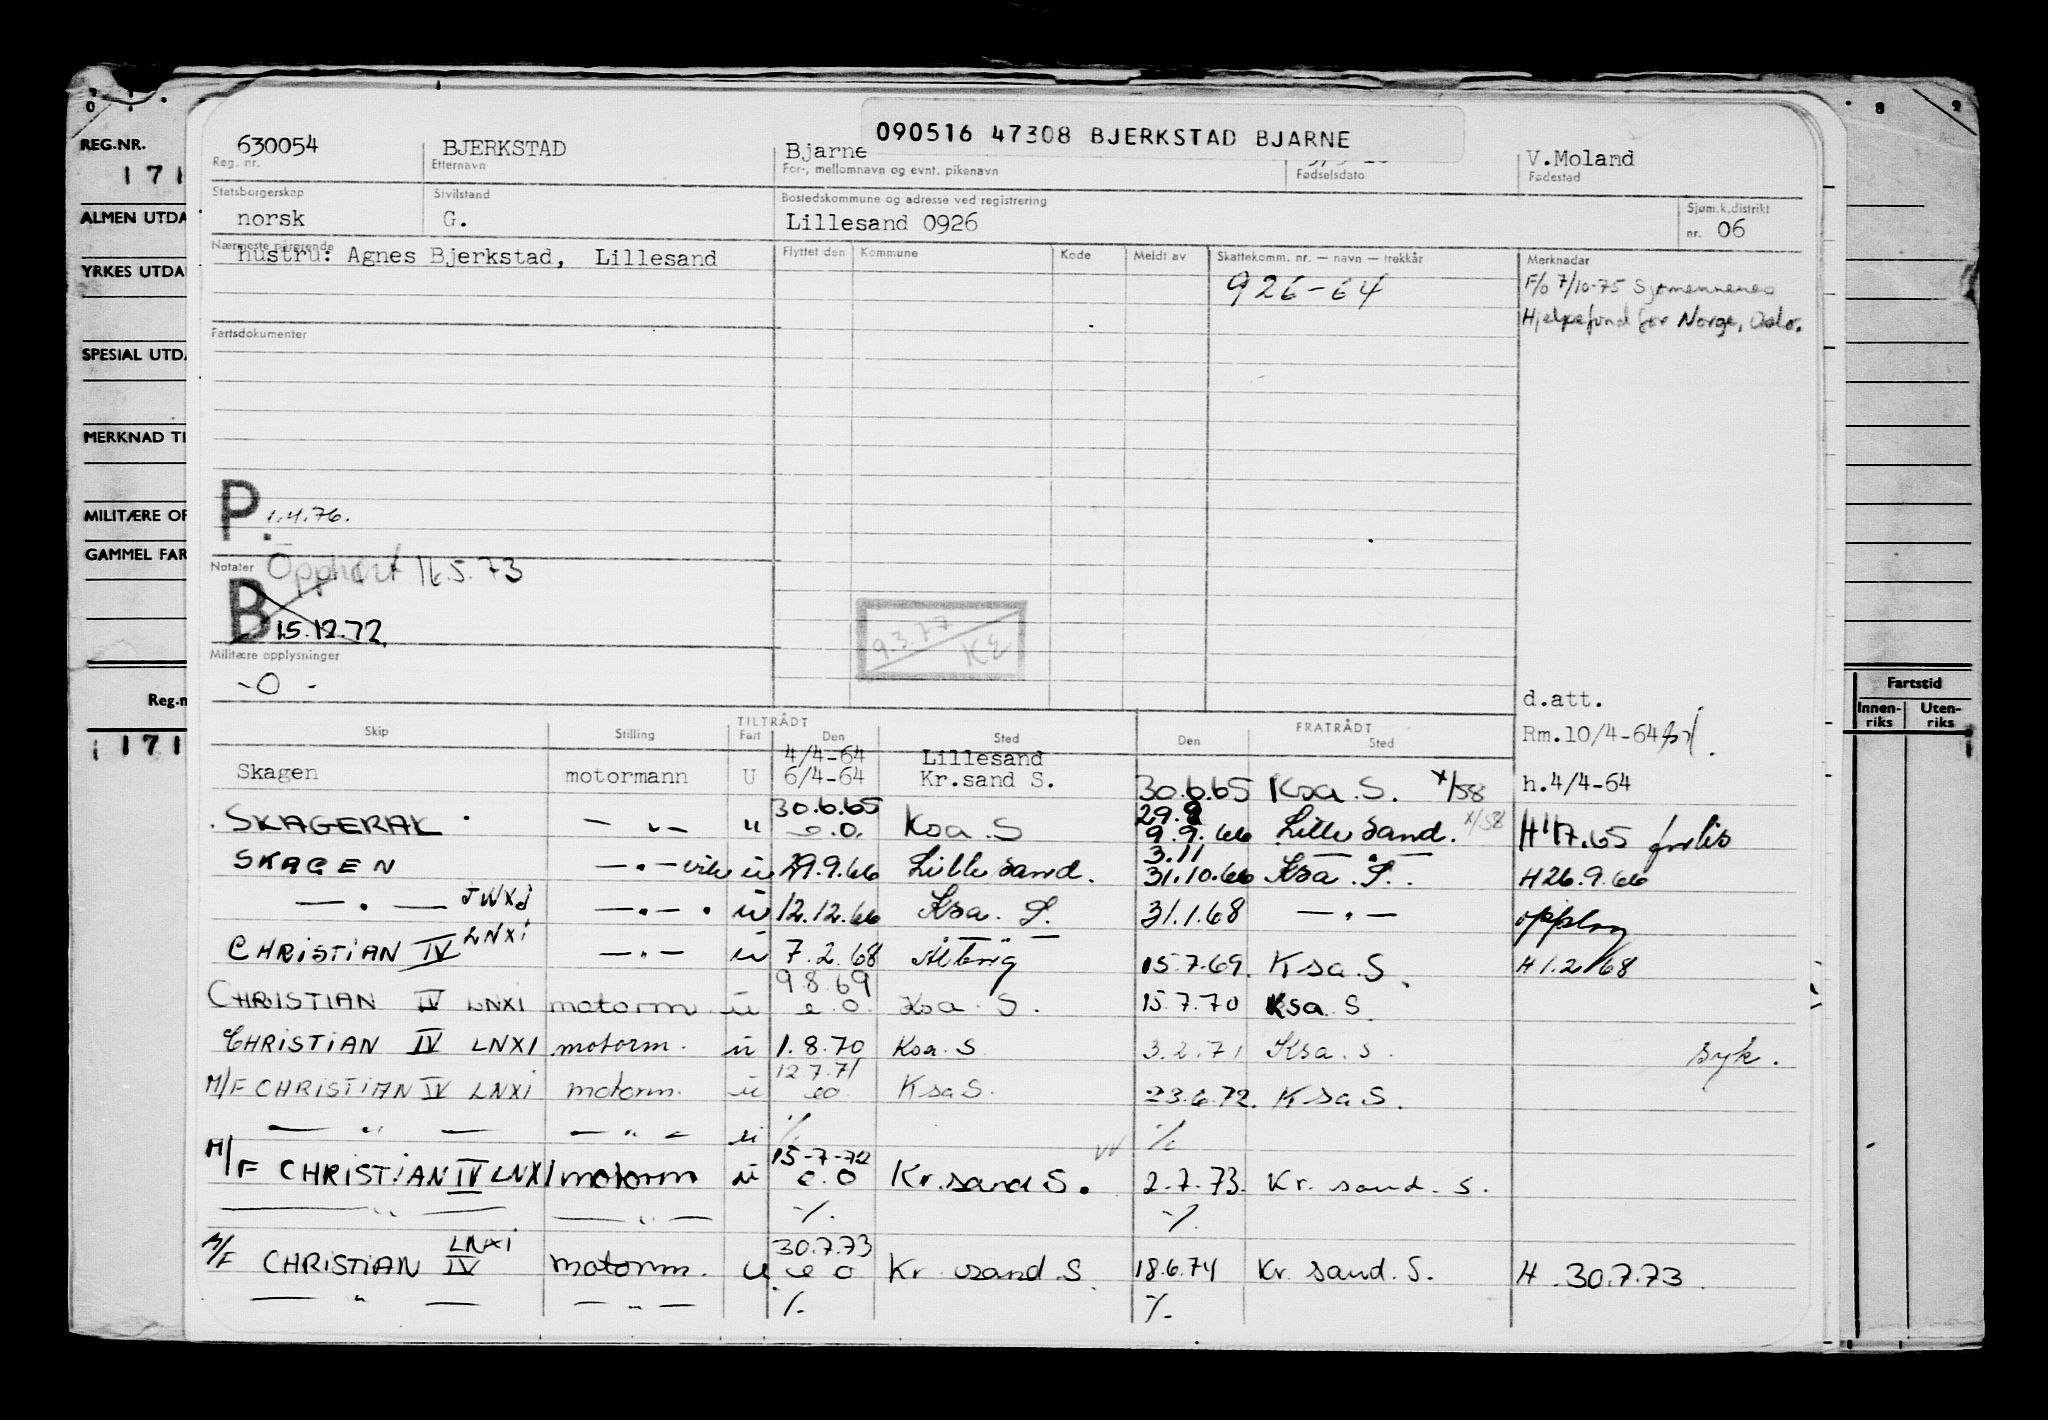 090516 47308 BJERKSTAD BJARNE
630054 BJERKSTAD Bjarne V.Moland
Reg. nr. Etternavn For-, mellomnavn og evnt. pikenavn Fødselsdato Fødested
Statsborgerskap Sivilstand Bostedskommune og adresse ved registrering Sjøm.k.distrikt
norsk G. Lillesand 0926 nr. 06
Nærmeste pårørende Flyttet den Kommune Kode Meldt av Skattekomm. nr. — navn — trekkår Merknader
hustru: Agnes Bjerkstad, Lillesand
926-64
F/o 7/10-75 Sjømennenes
Hjelpefond for Norge, Oslo.
Fartsdokumenter
P. 1.4.76.
Notater Opphørt 16.5.73
B 15.12.72.
9.3.77 KE
Militære opplysninger
-0-
d.att.
TILTRÅDT FRATRÅDT
Skip Stilling Fart Den Sted Den Sted
Rm.10/4-64
4/4-64 Lillesand
Skagen motormann U 6/4-64 Kr.sand S. 30.6.65 Ksa. S. x/58 h.4/4-64
30.6.65 29.9
SKAGERAK — " — " e.o. Ksa. S 9.9.66 Lillesand. x/58 H 1.7.65 forlis
3.11
SKAGEN — " — vik u 29.9.66 Lillesand. 31.10.66 Ksa. S. H 26.9.66
— " — JWXJ — " — u 12.12.66 Ksa. S. 31.1.68 — " — opplag
CHRISTIAN IV LNXI — " — u 7.2.68 Ålborg 15.7.69. Ksa. S. H 1.2.68
9.8.69
CHRISTIAN IV LNXI motorm u e.o. Ksa. S. 15.7.70 Ksa. S.
CHRISTIAN IV LNXI motorm. u 1.8.70 Ksa. S 3.2.71 Ksa. S. syk.
12.7.71
M/F CHRISTIAN IV LNXI motorm. u eo. Ksa S. 23.6.72. Ksa S.
— " — — " — u ./. ./.
15-7-72
M/F CHRISTIAN IV LNXI motorm u e.o Kr.sand S. 2.7.73. Kr. sand. S.
— " — — " — ./. ./.
30.7.73
M/F CHRISTIAN IV LNXI motorm. u e o Kr sand S. 18.6.74 Kr. sand. S. H. 30.7.73.
— " — — " — ./. ./.
REG.NR.
171
ALMEN UTDA
YRKES UTDA
SPESIAL UTDA
MERKNAD TI
MILITÆRE OP
GAMMEL FAR
Reg.n
171
8 9
Fartstid
Innen-riks Uten-riks